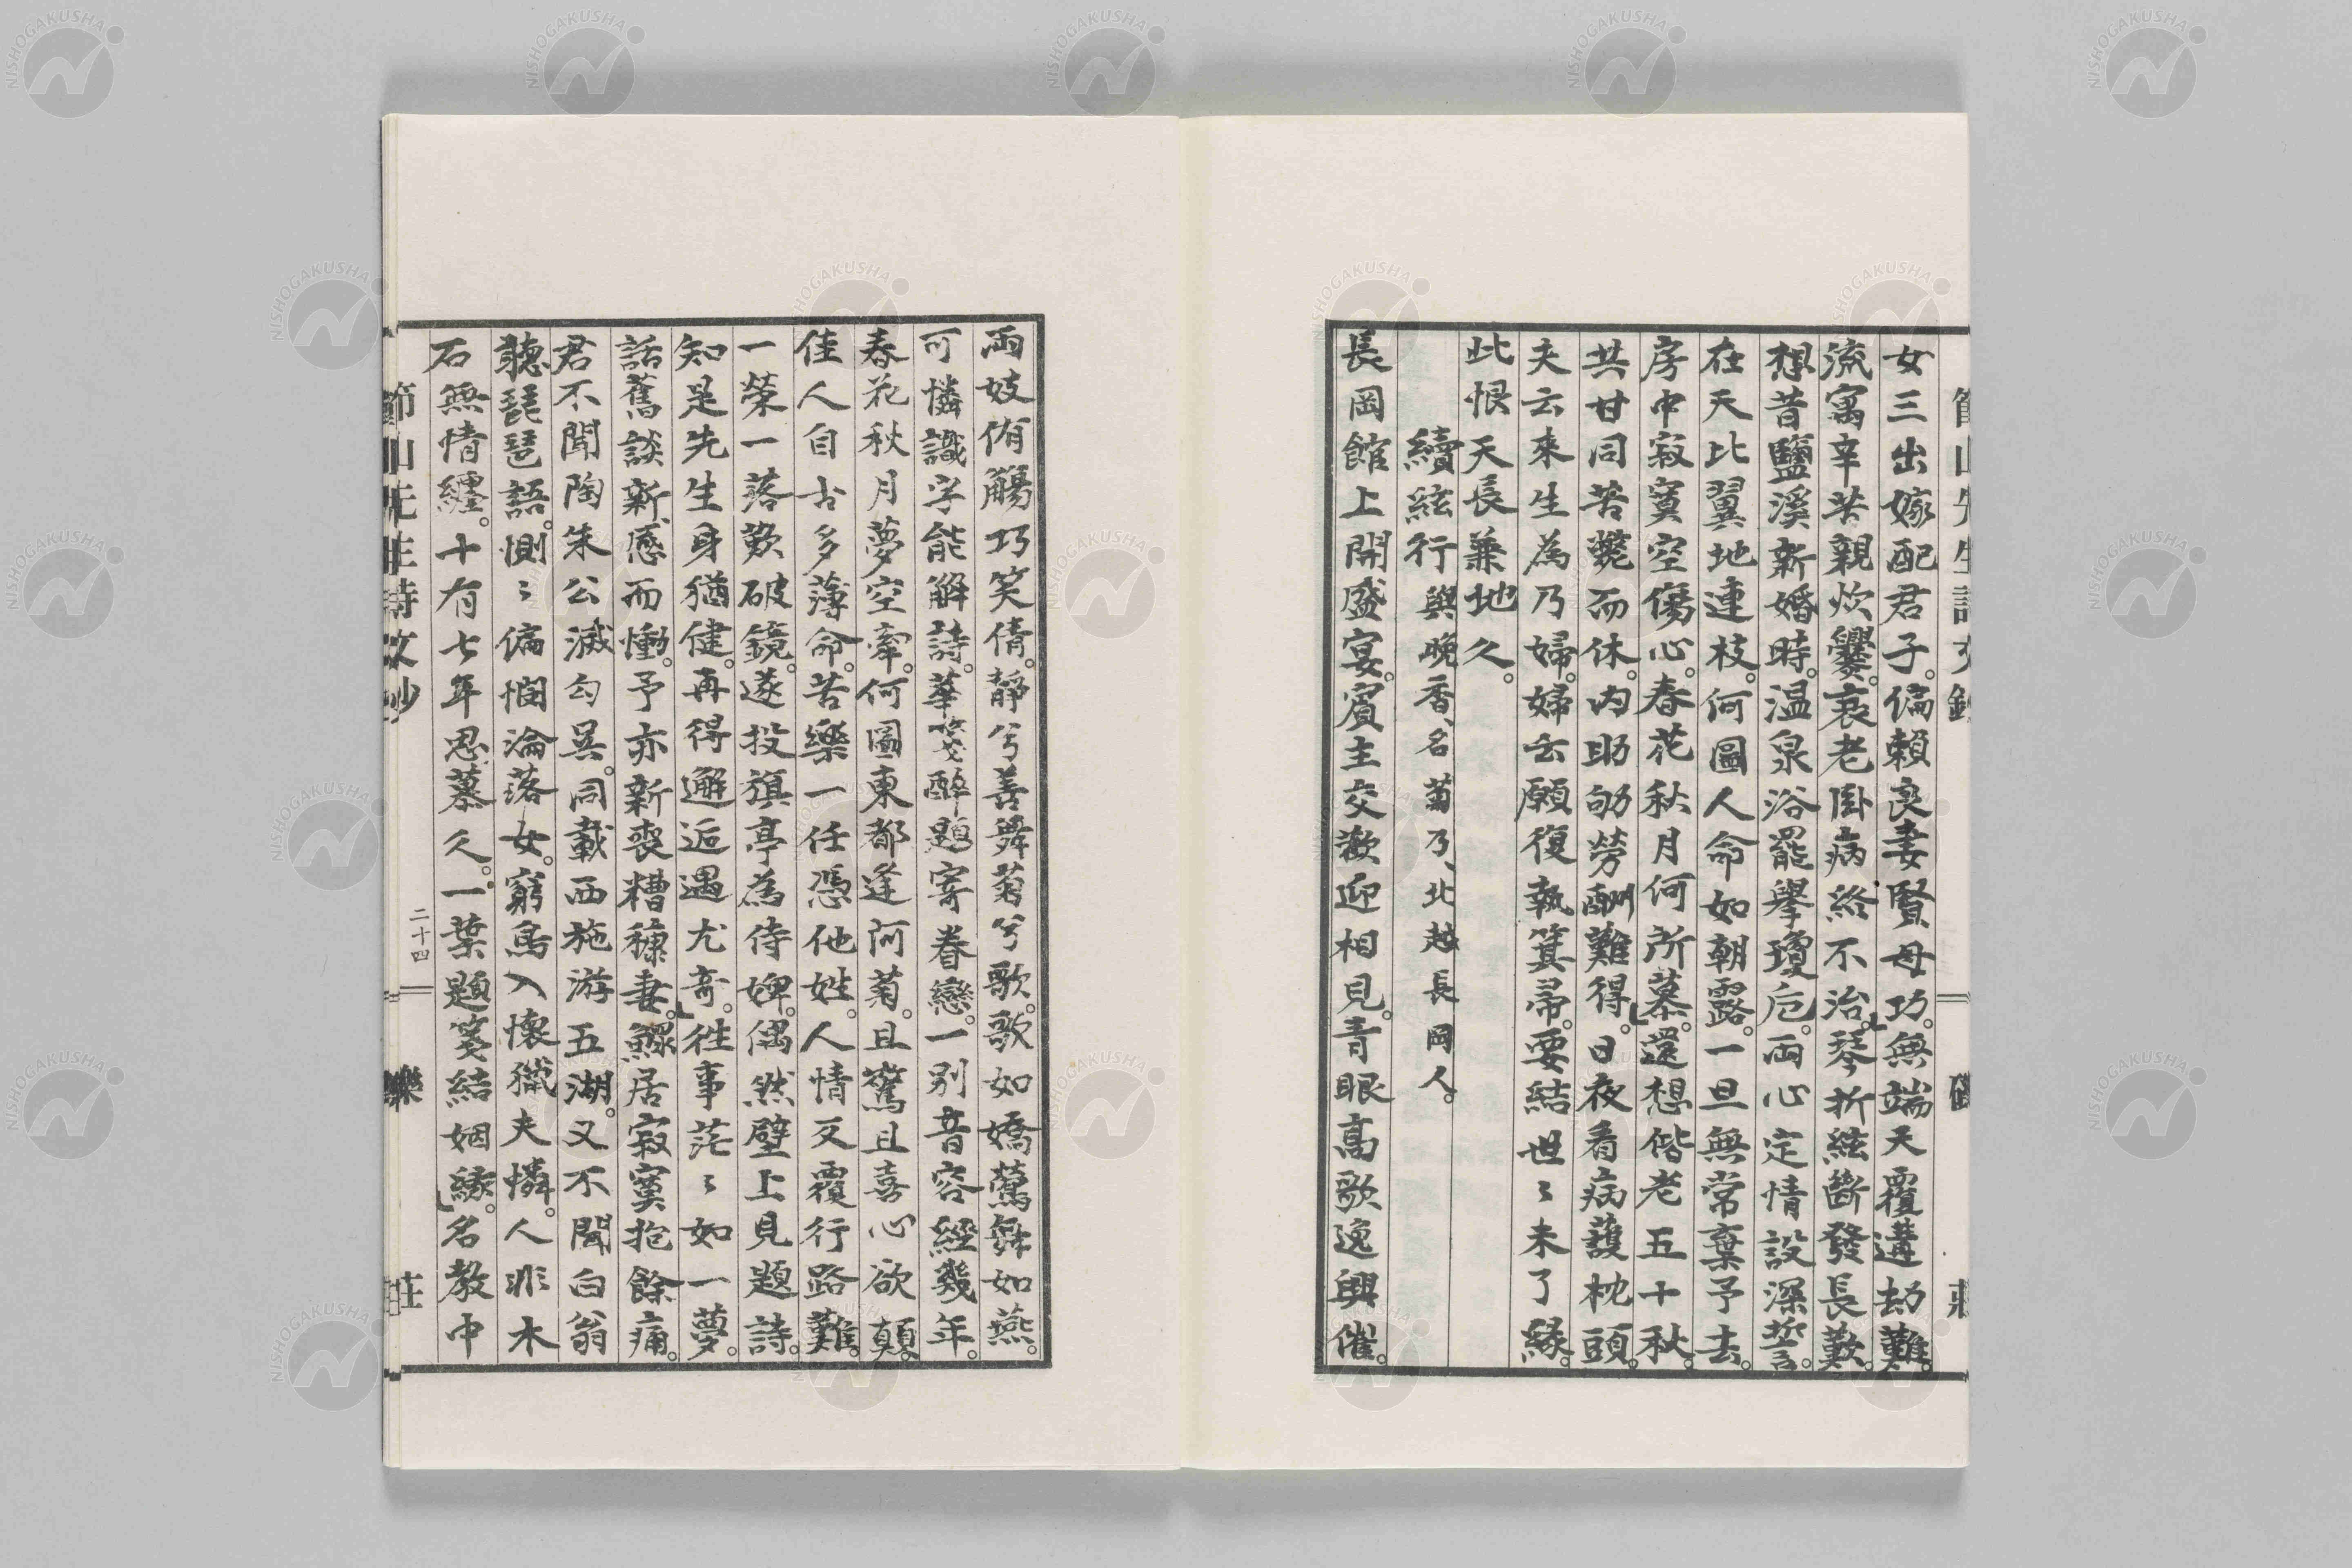 女三出嫁配君子。偏賴良妻賢母功。無端天覆遘劫難。
流寓辛苦親炊爨。衰老臥病終不治。琴折絃斷發長歎。
想昔鹽溪新婚時。温泉浴罷擧瓊卮。両心定情設深誓。
在天比翼地連枝。何圖人命如朝露。一旦無常棄予去。
房中寂寞空傷心。春花秋月何所慕。還想偕老五十秋。
共甘同苦斃而休。内助劬勞酬難得。日夜看病護枕頭。
夫云來生為乃婦。婦云願復執箕帚。要結世〻未了縁。
此恨天長兼地久。
續絃行 與晩香、名菊乃、北越長岡人。
長岡館上開盛宴。賓主交歡迎相見。青眼高歌逸興催。
両妓侑觴巧笑倩。靜兮善舞菊兮歌。歌如嬌鶯舞如燕。
可憐識字能解詩。華箋醉題寄眷戀。一別音容經幾年。
春花秋月夢空牽。何圖東都逢阿菊。且驚且喜心欲顛。
佳人自古多薄命。苦樂一任憑他姓。人情反覆行路難。
一榮一落歎破鏡。遂投旗亭為侍婢。偶然壁上見題詩。
知是先生身猶健。再得邂逅遇尤奇。徃事茫〻如一夢。
話舊談新感而慟。予亦新喪糟糠妻。鰥居寂寞抱餘痛。
君不聞陶朱公滅勾吳。同載西施游五湖。又不聞白翁
聽琵琶語。惻〻偏憫淪落女。窮鳥入懷獵夫憐。人非木
石無情纏。十有七年思慕久。一葉題箋結姻縁。名教中
節山先生詩文鈔
二十四
NISHOGAKUSHA